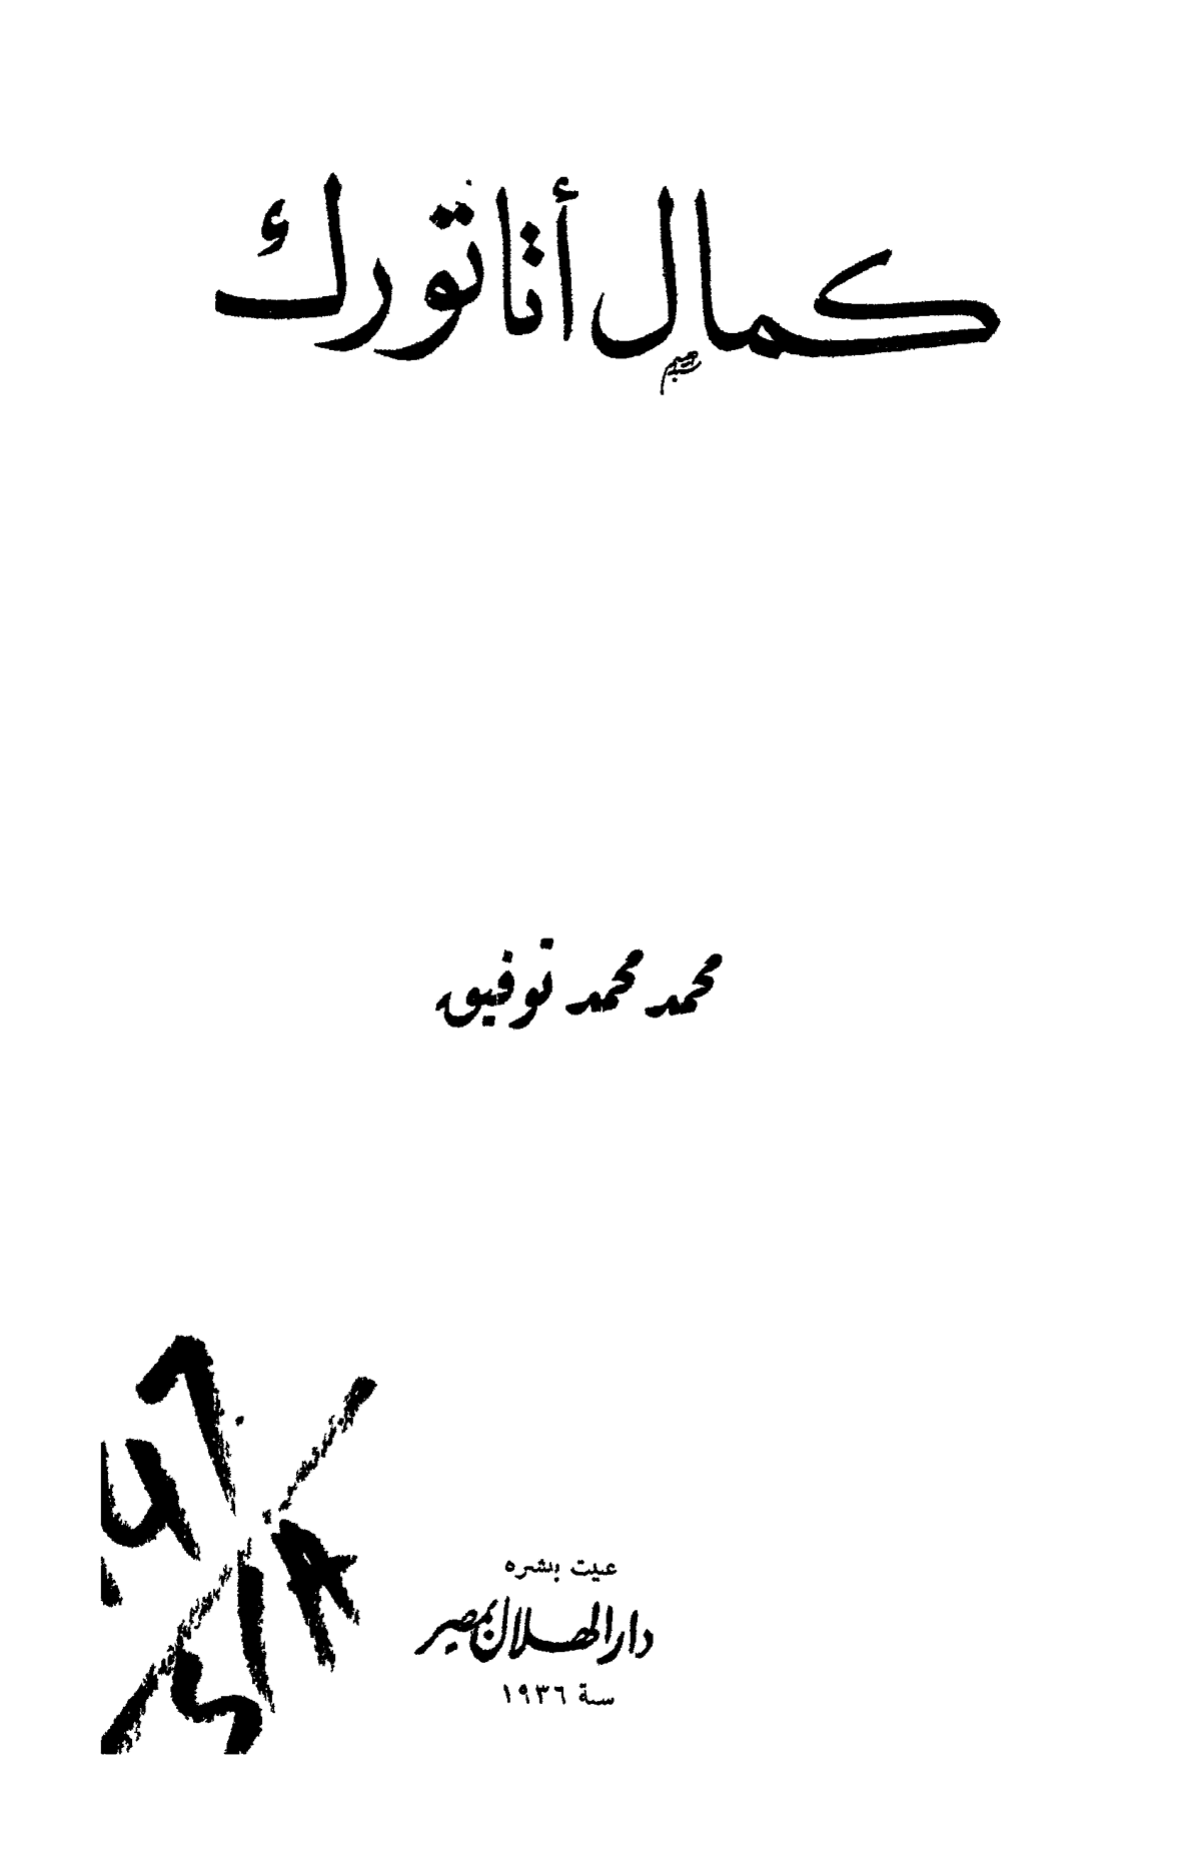 كمال أتاتورك
محمد محمد توفيق
عنيت بنشره
دار الهلال بمصر
سنة ١٩٣٦